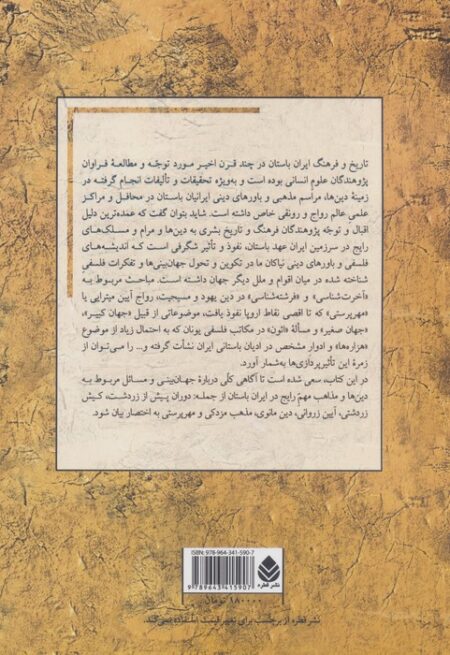 تاریخ و فرهنگ ایران باستان در چند قرن اخیر مورد توجّه و مطالعهٔ فراوان
پژوهندگان علوم انسانی بوده است و به‌ویژه تحقیقات و تألیفات انجام گرفته در
زمینهٔ دین‌ها، مراسم مذهبی و باورهای دینی ایرانیان باستان در محافل و مراکز
علمی عالم رواج و رونقی خاص داشته است. شاید بتوان گفت که عمده‌ترین دلیل
اقبال و توجّه پژوهندگان فرهنگ و تاریخ بشری به دین‌ها و مرام و مسلک‌های
رایج در سرزمین ایران عهد باستان، نفوذ و تأثیر شگرفی است که اندیشه‌های
فلسفی و باورهای دینی نیاکان ما در تکوین و تحول جهان‌بینی‌ها و تفکرات فلسفی
شناخته شده در میان اقوام و ملل دیگر جهان داشته است. مباحث مربوط به
«آخرت‌شناسی» و «فرشته‌شناسی» در دین یهود و مسیحیت، رواج آیین میترایی یا
«مهرپرستی» که تا اقصی نقاط اروپا نفوذ یافت، موضوعاتی از قبیل «جهان کبیر»،
«جهان صغیر» و مسألهٔ «ائون» در مکاتب فلسفی یونان که به احتمال زیاد از موضوع
«هزاره‌ها» و ادوار مشخص در ادیان باستانی ایران نشأت گرفته و... را می‌توان از
زمرهٔ این تأثیرپردازی‌ها به‌شمار آورد.
در این کتاب، سعی شده است تا آگاهی کلّی دربارهٔ جهان‌بینی و مسائل مربوط به
دین‌ها و مذاهب مهمّ رایج در ایران باستان از جمله: دوران پیش از زردشت، کیش
زردشتی، آیین زروانی، دین مانوی، مذهب مزدکی و مهرپرستی به اختصار بیان شود.
ISBN: 978-964-341-590-7
9 789643 415907
نشر قطره
۱۸۰۰۰۰ تومان
نشر قطره از برچسب برای تغییر قیمت استفاده نمی‌کند